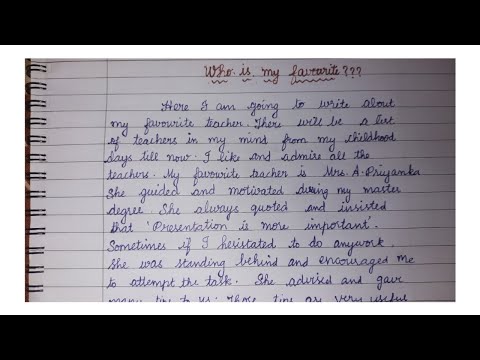 Who is my favourite???
Here I am going to write about
my favourite teacher. There will be a list
of teachers in my mind from my childhood
days till now. I like and admire all the
teachers. My favourite teacher is Mrs. A. Priyanka
She guided and motivated during my master
degree. She always quoted and insisted
that 'Presentation is more important'.
Sometimes if I hesistated to do anywork.
She was standing behind and encouraged me
to attempt the task. She advised and gave
many tips to us. Those tips are very useful